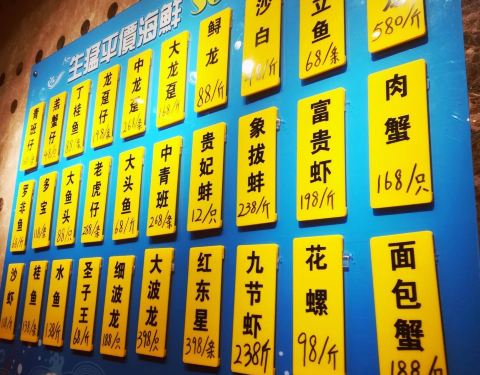 生猛平價海鮮
青斑仔
羔蟹仔
丁桂鱼
龙趸仔
中龙趸
268/条
大龙趸
168/斤
鲟龙
88/斤
沙白
立鱼
68/条
580/斤
罗非鱼
多宝
大鱼头
88/只
老虎仔
288/条
大头鱼
68/斤
中青斑
268/条
贵妃蚌
12/只
象拔蚌
238/斤
富贵虾
198/斤
肉蟹
168/只
沙虾
桂鱼
138/条
水鱼
138/斤
圣子王
68/斤
细波龙
188/只
大波龙
398/只
红东星
398/条
九节虾
238/斤
花螺
98/斤
面包蟹
188/只